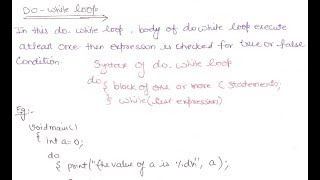 Do-While loop
In this do-while loop, body of do while loop execute
atleast once then expression is checked for true or false
Condition.
Syntax of do-while loop
do { block of one or more C statements;
} while (test expression)
Eg:-
Void main()
{ int a=0;
do
{ print("the value of a is %d\n", a);